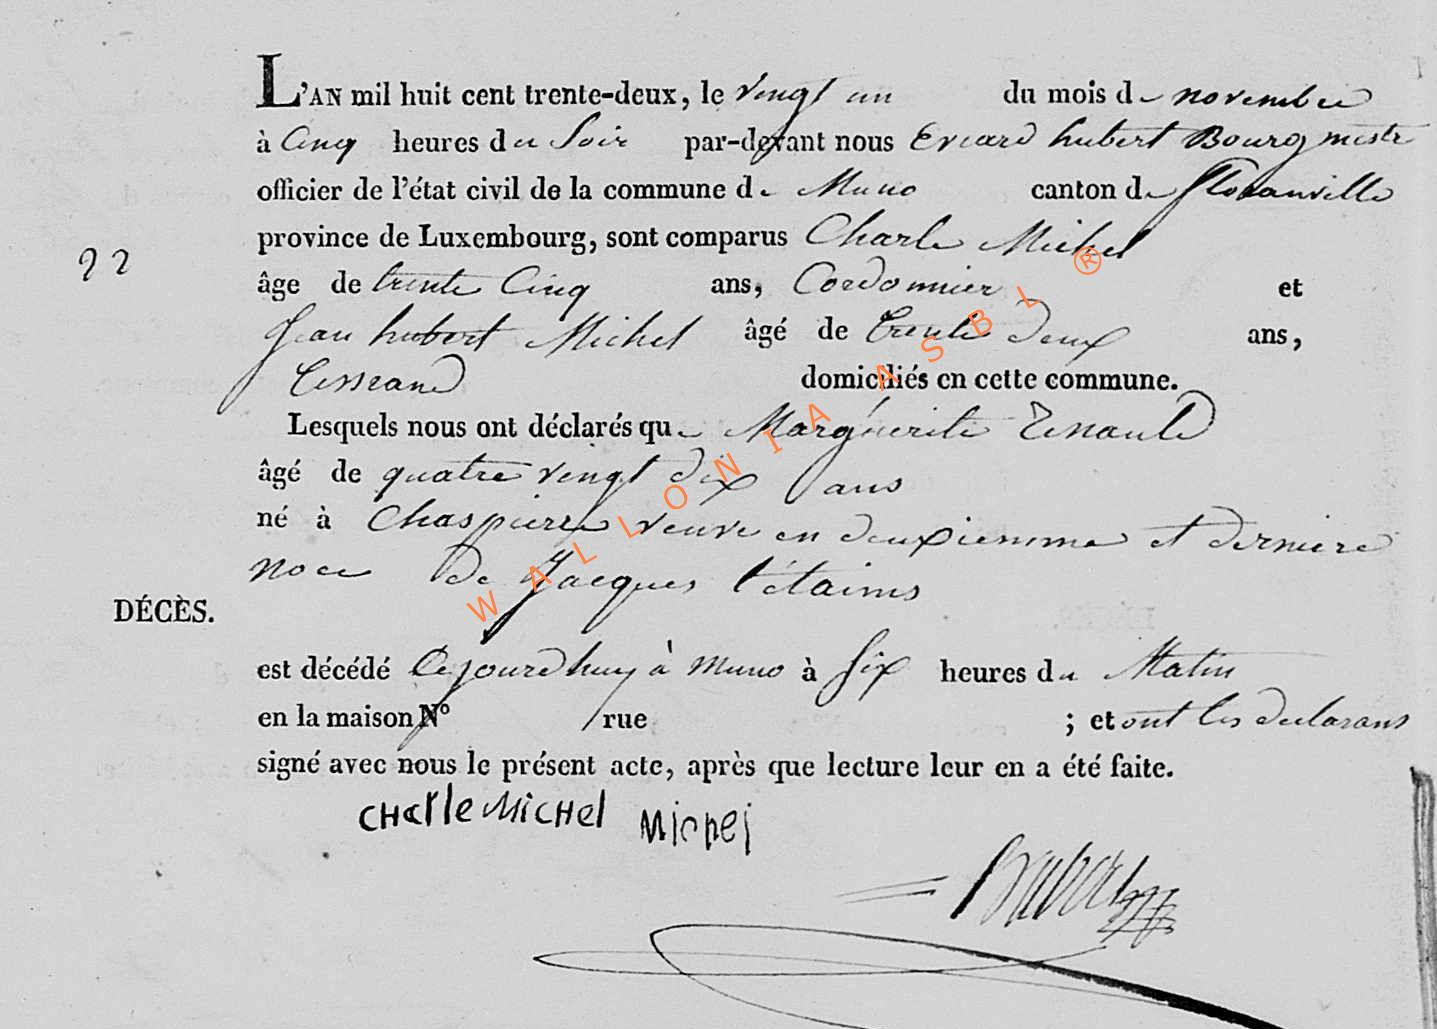 L'AN mil huit cent trente-deux, le vingt un du mois de novembre
à Cinq heures du Soir par-devant nous Evrard hubert Bourgmestre
officier de l'état civil de la commune de Muno canton de florenville
province de Luxembourg, sont comparus Charle Michel
22
âge de trente Cinq ans, Cordonnier et
Jean hubert Michel âgé de trente deux ans,
tisserand domiciliés en cette commune.
Lesquels nous ont déclarés que Marguerite Renauld
âgé de quatre vingt dix ans
né à Chaspierre veuve en deuxiemme et derniere
noce de Jacques
DÉCÈS.
est décédé Cejourdhuy à Muno à Six heures du Matin
en la maison N° rue ; et ont les declarans
signé avec nous le présent acte, après que lecture leur en a été faite.
CHarle MicHel Michel
WALLONIA ASBL ®